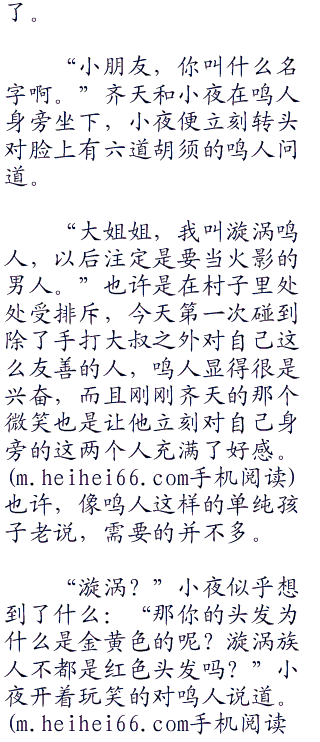 了。
“小朋友，你叫什么名
字啊。”齐天和小夜在鸣人
身旁坐下，小夜便立刻转头
对脸上有六道胡须的鸣人问
道。
“大姐姐，我叫漩涡鸣
人，以后注定是要当火影的
男人。”也许是在村子里处
处受排斥，今天第一次碰到
除了手打大叔之外对自己这
么友善的人，鸣人显得很是
兴奋，而且刚刚齐天的那个
微笑也是让他立刻对自己身
旁的这两个人充满了好感。
(m.heihei66.com手机阅读)
也许，像鸣人这样的单纯孩
子老说，需要的并不多。
“漩涡？”小夜似乎想
到了什么：“那你的头发为
什么是金黄色的呢？漩涡族
人不都是红色头发吗？”小
夜开着玩笑的对鸣人说道。
(m.heihei66.com手机阅读